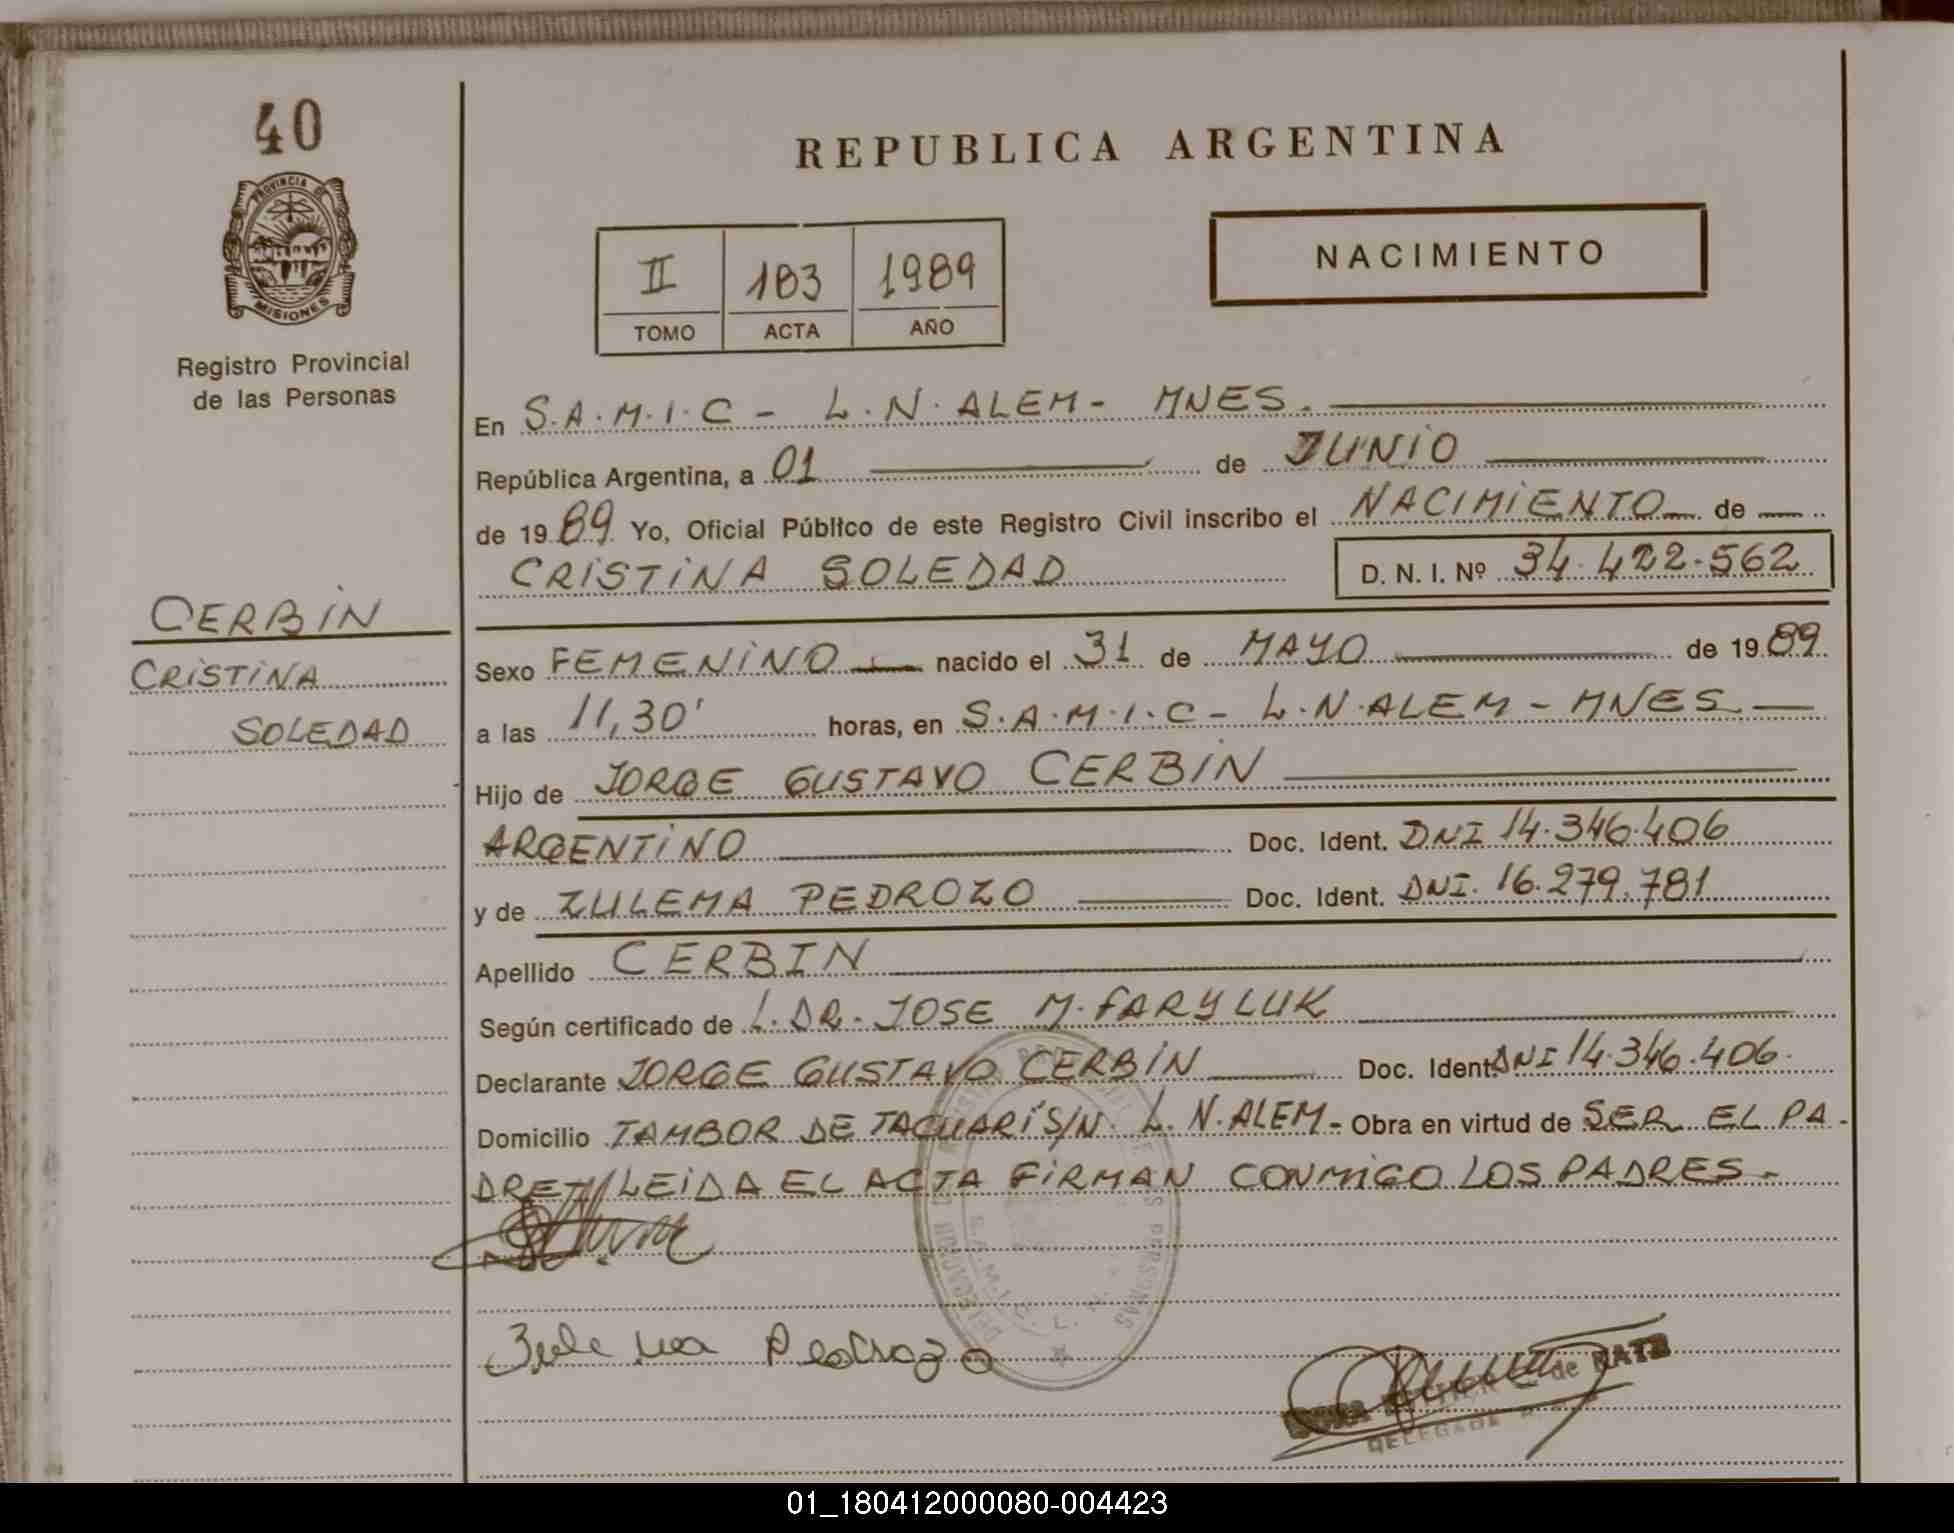 40
PROVINCIA DE
MISIONES
Registro Provincial
de las Personas
CERBIN
CRISTINA
SOLEDAD
REPUBLICA ARGENTINA
NACIMIENTO
II 183 1989
TOMO ACTA AÑO
En S.A.M.I.C - L.N.ALEM - MNES.
República Argentina, a 01 de JUNIO
de 1989 Yo, Oficial Público de este Registro Civil inscribo el NACIMIENTO de
CRISTINA SOLEDAD D. N. I. Nº 34.422.562
Sexo FEMENINO nacido el 31 de MAYO de 1989
a las 11,30' horas, en S.A.M.I.C - L.N.ALEM - MNES
Hijo de JORGE GUSTAVO CERBIN
ARGENTINO Doc. Ident. DNI 14.346.406
y de ZULEMA PEDROZO Doc. Ident. DNI. 16.279.781
Apellido CERBIN
Según certificado de L. DR. JOSE M. FARYLUK
Declarante JORGE GUSTAVO CERBIN Doc. Ident. DNI 14.346.406.
Domicilio TAMBOR DE TACUARÍ S/N. L.N.ALEM - Obra en virtud de SER EL PA-
DRE LEIDA EL ACTA FIRMAN CONMIGO LOS PADRES.-
PERSONAS
S.A.M.I.C. L.N.
Zulema Pedrozo
de RATH
DELEGADA
01_180412000080-004423